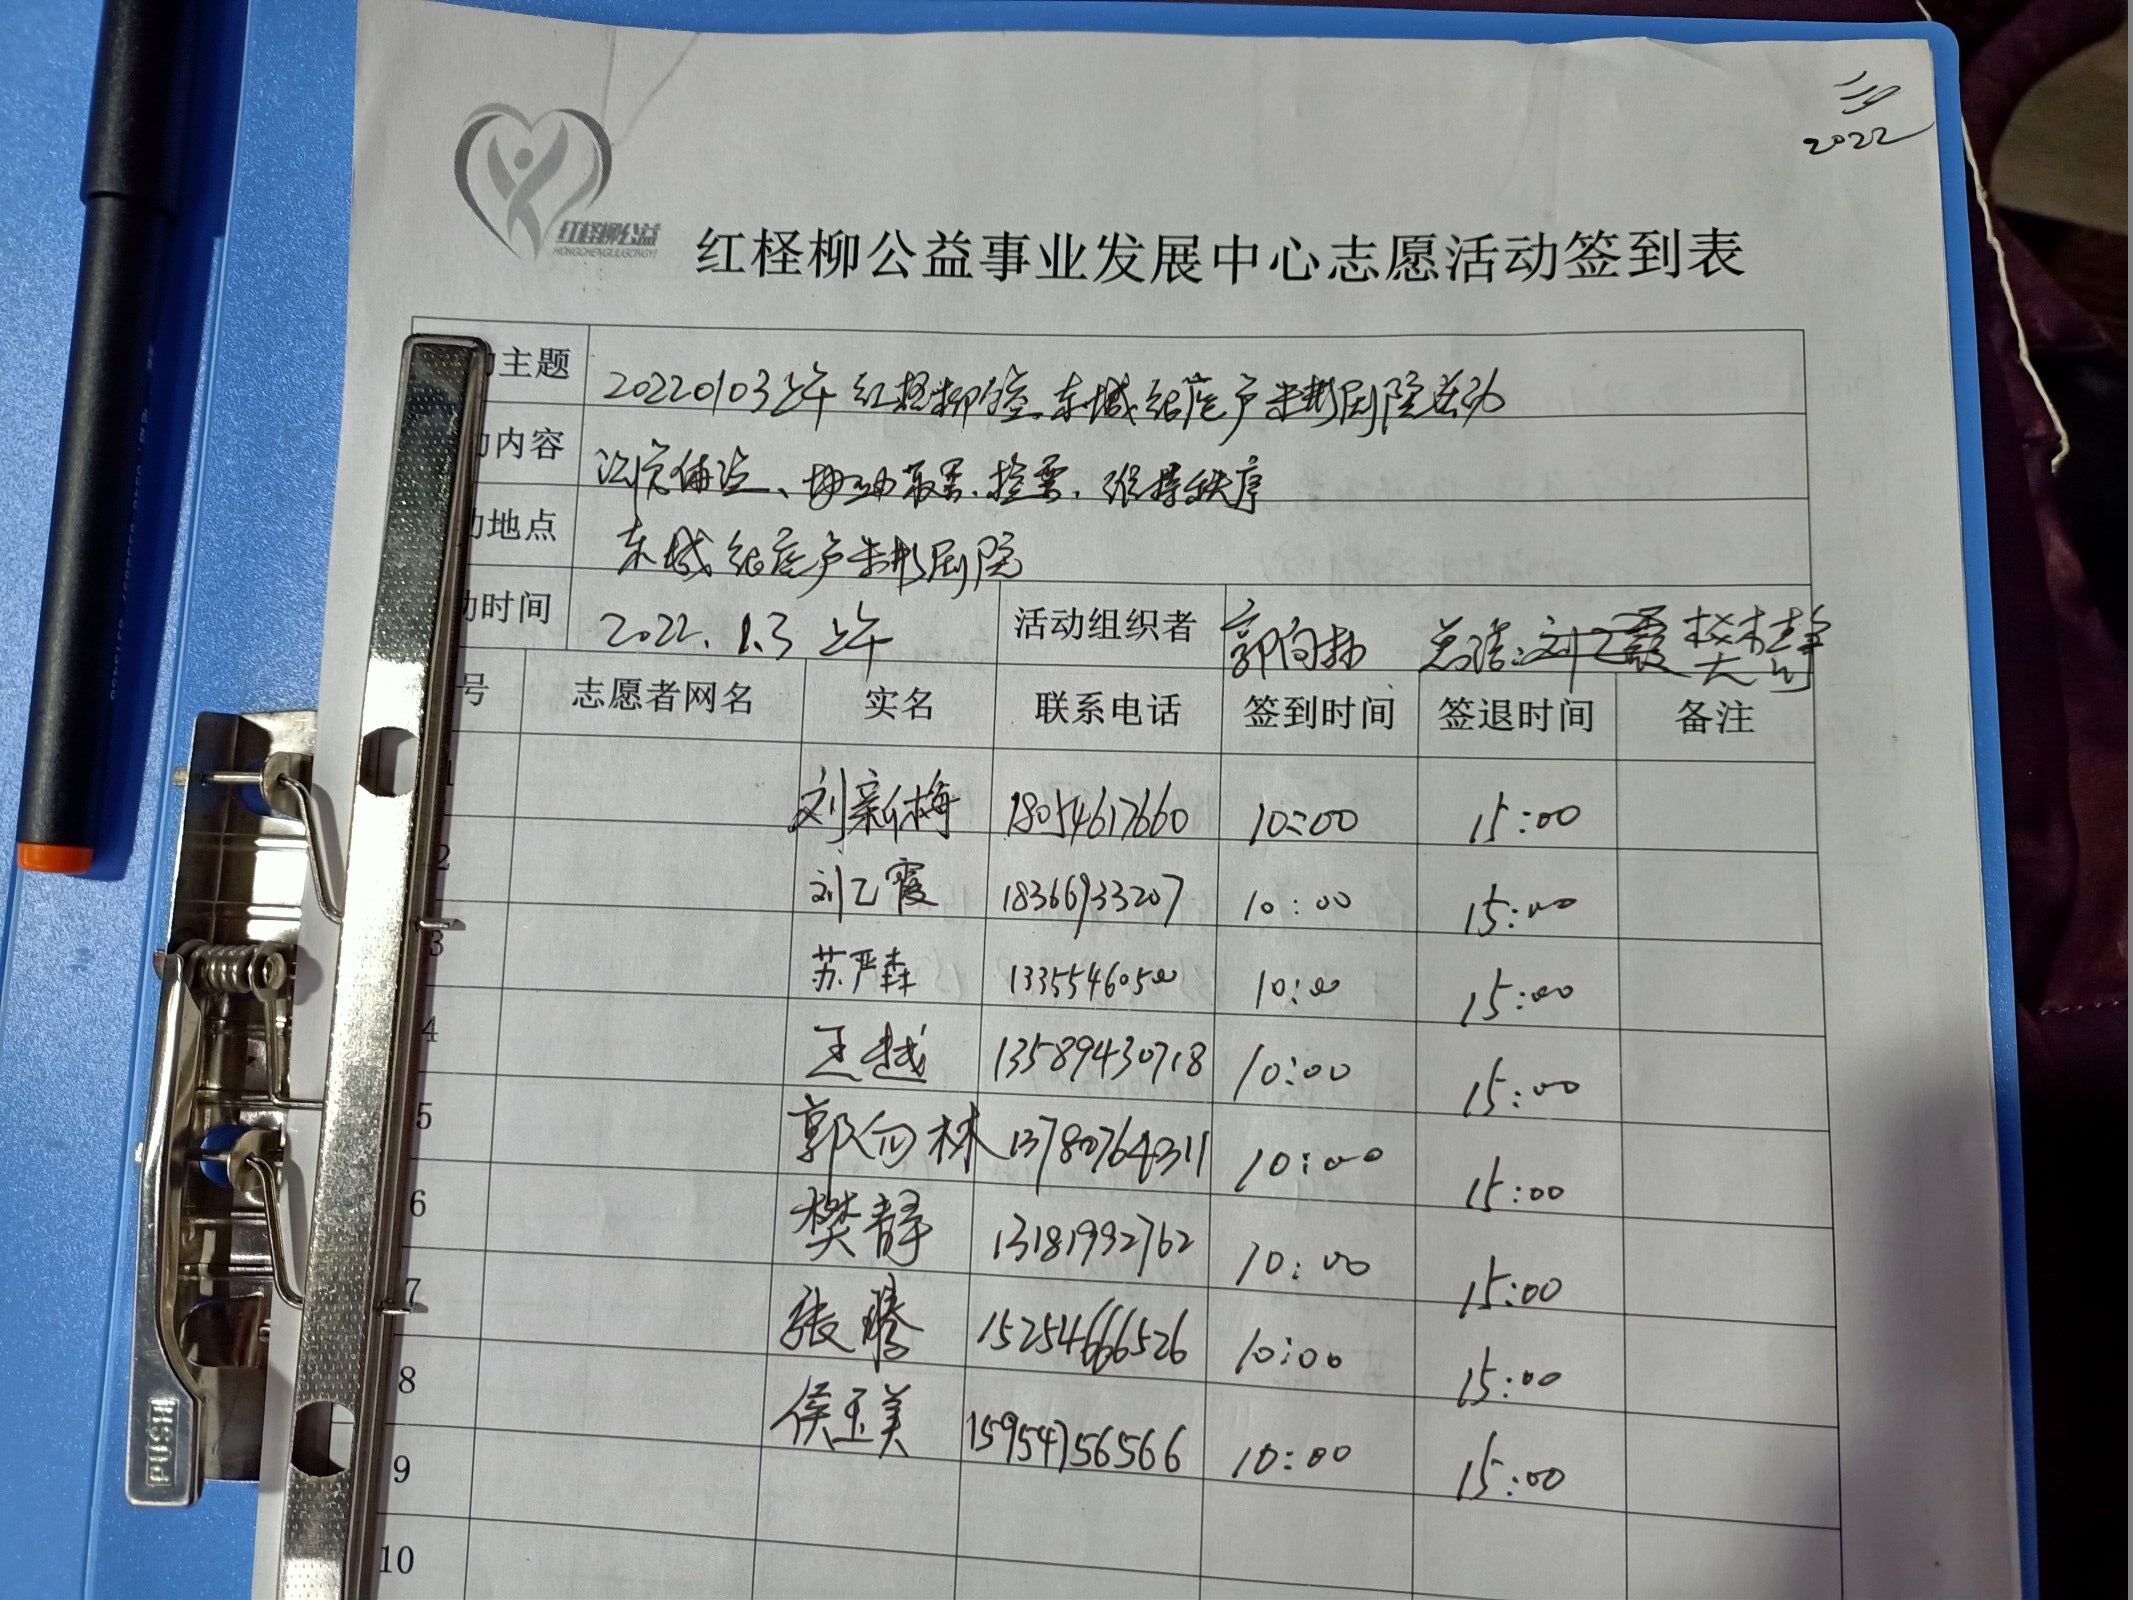 2022
红柽柳公益
HONGCHENGLIUGONGYI
红柽柳公益事业发展中心志愿活动签到表
主题 20220103上午红柽柳 东城 剧院活动
内容 维持秩序
地点 东城 剧院
时间 2022.1.3 上午 活动组织者 郭向林 总结:刘乙霞 樊静
号 志愿者网名 实名 联系电话 签到时间 签退时间 备注
1 刘新梅 18054617660 10:00 15:00
2 刘乙霞 18366933207 10:00 15:00
3 苏严森 13355460500 10:00 15:00
4 王越 13589430718 10:00 15:00
5 郭向林 13780764311 10:00 15:00
6 樊静 13181992762 10:00 15:00
7 张腾 15254666526 10:00 15:00
8 侯玉美 15954756566 10:00 15:00
9
10
PUSH